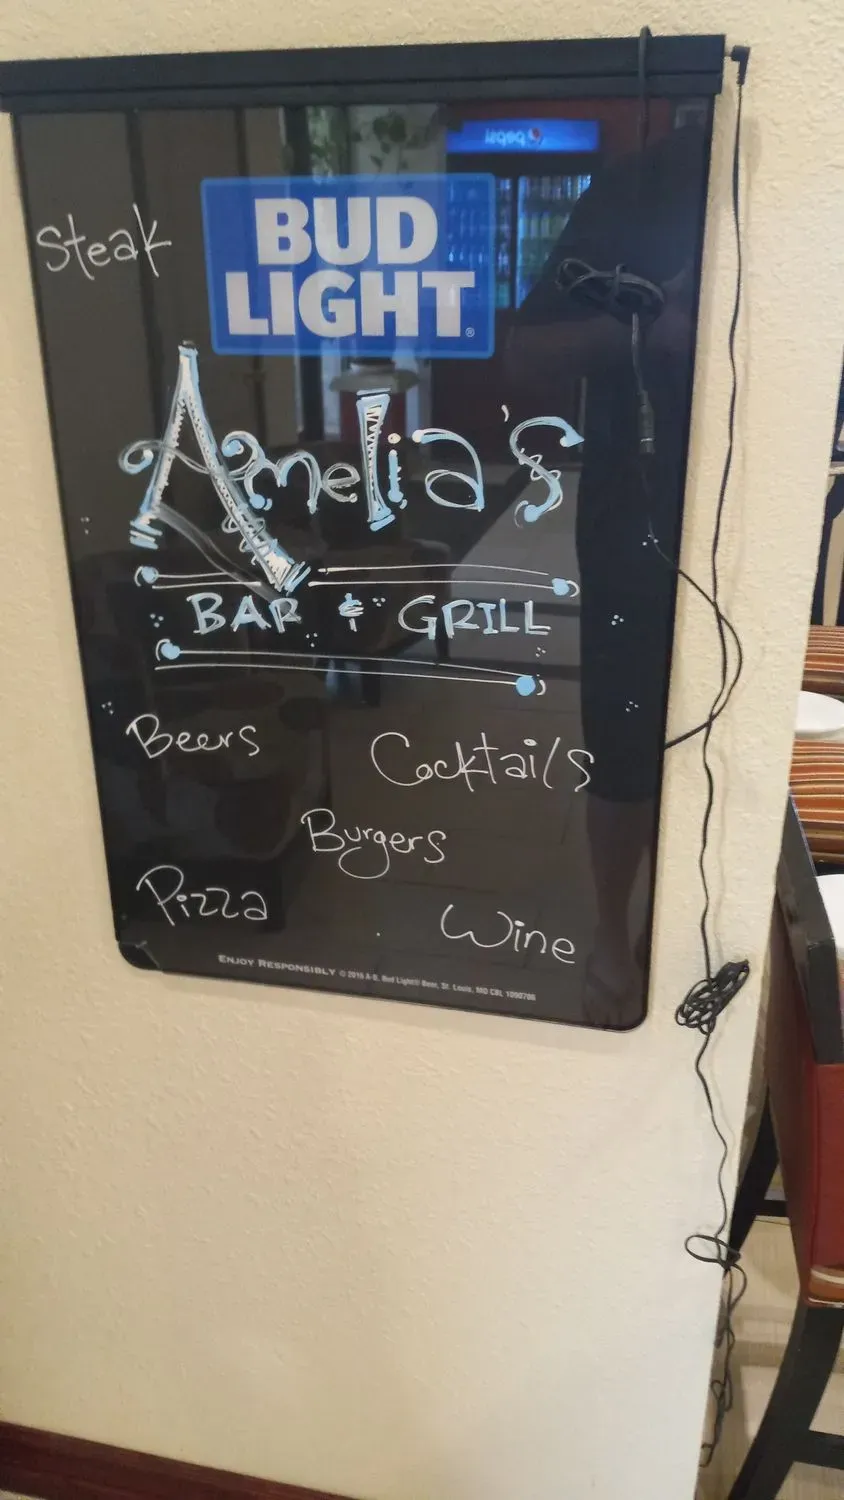 pepsi
BUD
LIGHT®
Steak
Amelia's
BAR & GRILL
Beers
Cocktails
Burgers
Pizza
Wine
ENJOY RESPONSIBLY © 2016 A-B, Bud Light® Beer, St. Louis, MO CBL 1090786